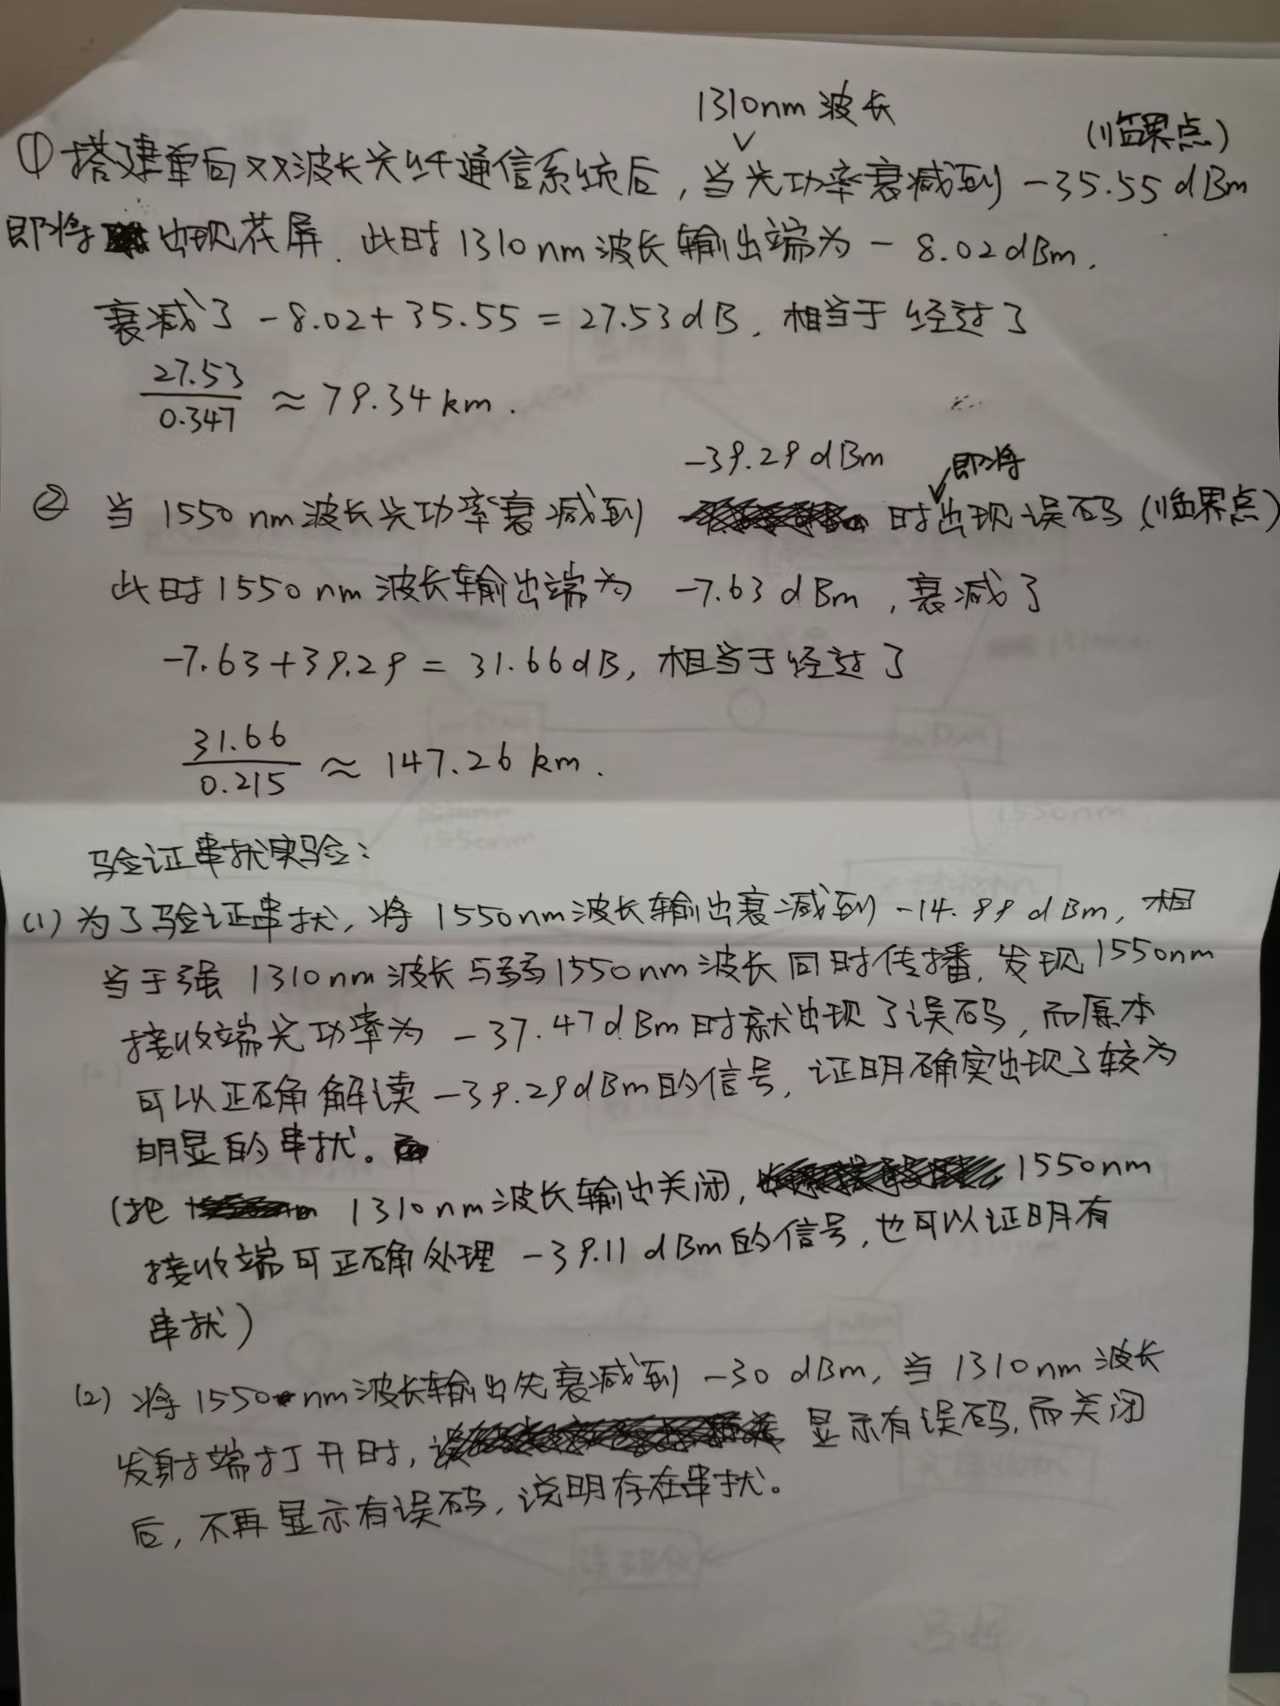 1310nm波长
∨
(临界点)
① 搭建单向双波长光纤通信系统后，当光功率衰减到 -35.55dBm
即将出现花屏．此时1310nm波长输出端为 -8.02dBm．
衰减了 -8.02+35.55=27.53dB，相当于经过了
27.53/0.347 ≈ 79.34km．
-39.29dBm 即将
② 当1550nm波长光功率衰减到 时出现误码(临界点)
此时1550nm波长输出端为 -7.63dBm，衰减了
-7.63+39.29=31.66dB，相当于经过了
31.66/0.215 ≈ 147.26km．
验证串扰实验：
(1) 为了验证串扰，将1550nm波长输出衰减到 -14.99dBm，相
当于强1310nm波长与弱1550nm波长同时传播，发现1550nm
接收端光功率为 -37.47dBm时就出现了误码，而原本
可以正确解读 -39.29dBm的信号，证明确实出现了较为
明显的串扰。
(把 1310nm波长输出关闭， 1550nm
接收端可正确处理 -39.11dBm的信号，也可以证明有
串扰)
(2) 将1550nm波长输出先衰减到 -30dBm，当1310nm波长
发射端打开时， 显示有误码，而关闭
后，不再显示有误码，说明存在串扰。